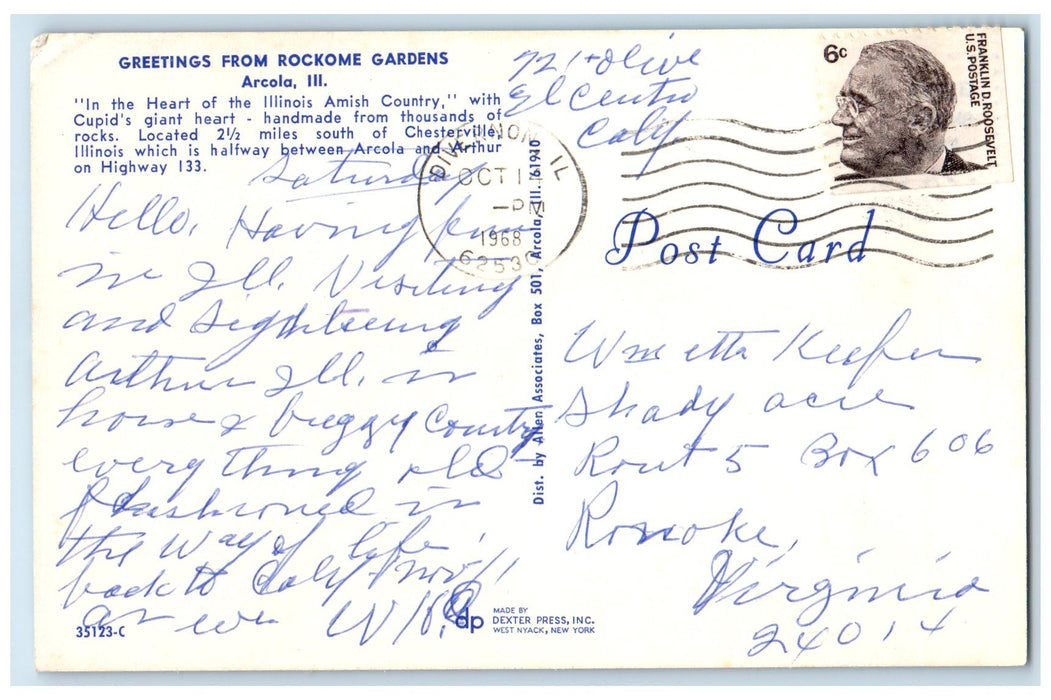 GREETINGS FROM ROCKOME GARDENS
Arcola, Ill.
"In the Heart of the Illinois Amish Country," with
Cupid's giant heart - handmade from thousands of
rocks. Located 2½ miles south of Chesterville,
Illinois which is halfway between Arcola and Arthur
on Highway 133.
721 Olive
El Centro
Calif
DIVERNON IL
OCT 1
-PM
1968
6253
6c
FRANKLIN D. ROOSEVELT
U.S. POSTAGE
Post Card
Saturday
Hello. Having fun
in Ill. Visiting
and Sightseeing
Arthur Ill. in
horse & buggy Country
every thing old
fashioned in
the way of life,
back to Calif Nov 1
as
Dist. by Allen Associates, Box 501, Arcola, Ill. 61910
Keefer
Shady acres
Rout 5 Box 606
Ronoke,
Virginia
24014
35123-C
dp
MADE BY
DEXTER PRESS, INC.
WEST NYACK, NEW YORK